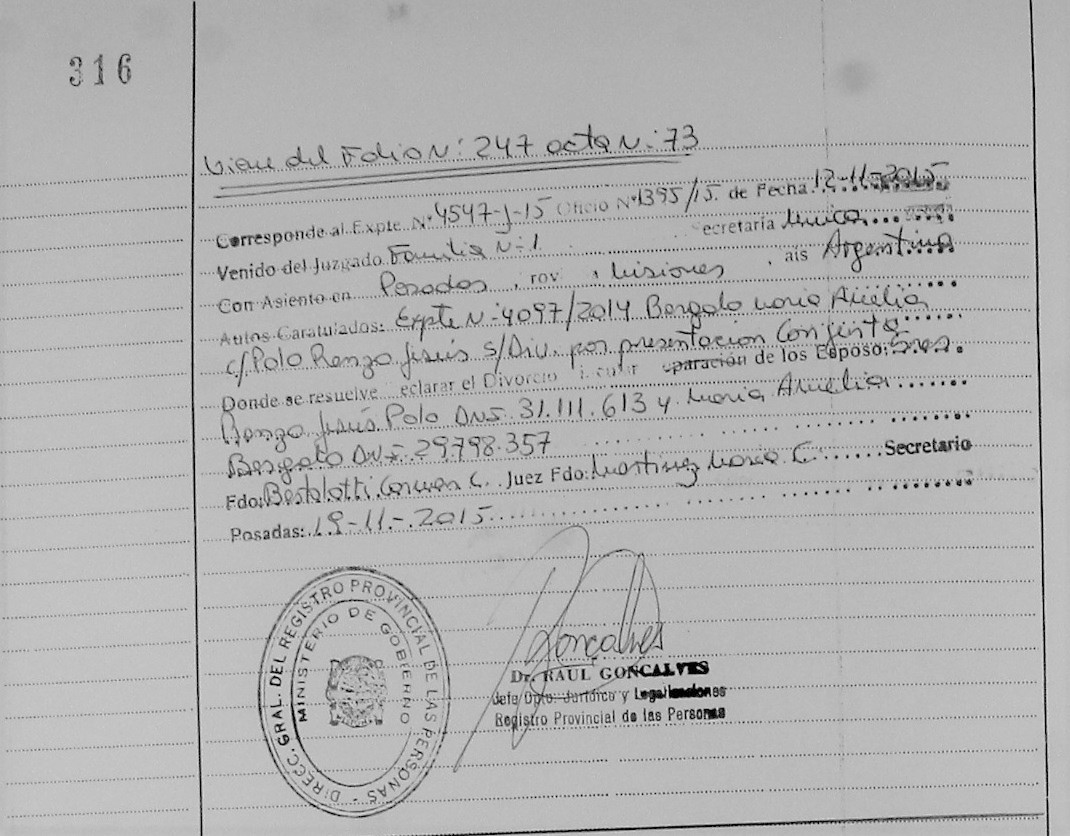 316
Viene del Folio N: 247 acta N: 73
Corresponde al Expte. N° 4547-J-15 Oficio N° 1395/15. de Fecha 12-11-2015
Venido del Juzgado Familia N: 1 ecretaría Unica
Con Asiento en Posadas, rov Misiones, aís Argentina
Autos Caratulados: Expte N: 4097/2014 Bergalo Maria Amelia
c/ Polo Renzo Jesús s/Div. por presentacion Conjunta
Donde se resuelve eclarar el Divorcio incular eparación de los Esposo: Sres.
Renzo Jesús Polo DNI. 31.111.613 y Maria Amelia
Bergalo DNI. 29.798.357
Fdo: Bertolotti Carmen C. Juez Fdo: Martinez Maria C. Secretario
Posadas: 19-11-.2015
DIRECC. GRAL. DEL REGISTRO PROVINCIAL DE LAS PERSONAS -
MINISTERIO DE GOBIERNO
Goncalves
Dr. RAUL GONCALVES
Jefe Dpto. Jurídico y Legalizaciones
Registro Provincial de las Personas